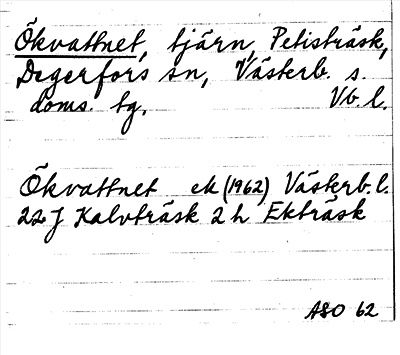 Ökvattnet, tjärn, Petisträsk,
Degerfors sn, Västerb. s.
doms. tg. Vb. l.
Ökvattnet ek (1962) Västerb. l.
22J Kalvträsk 2 h Ekträsk
ASO 62